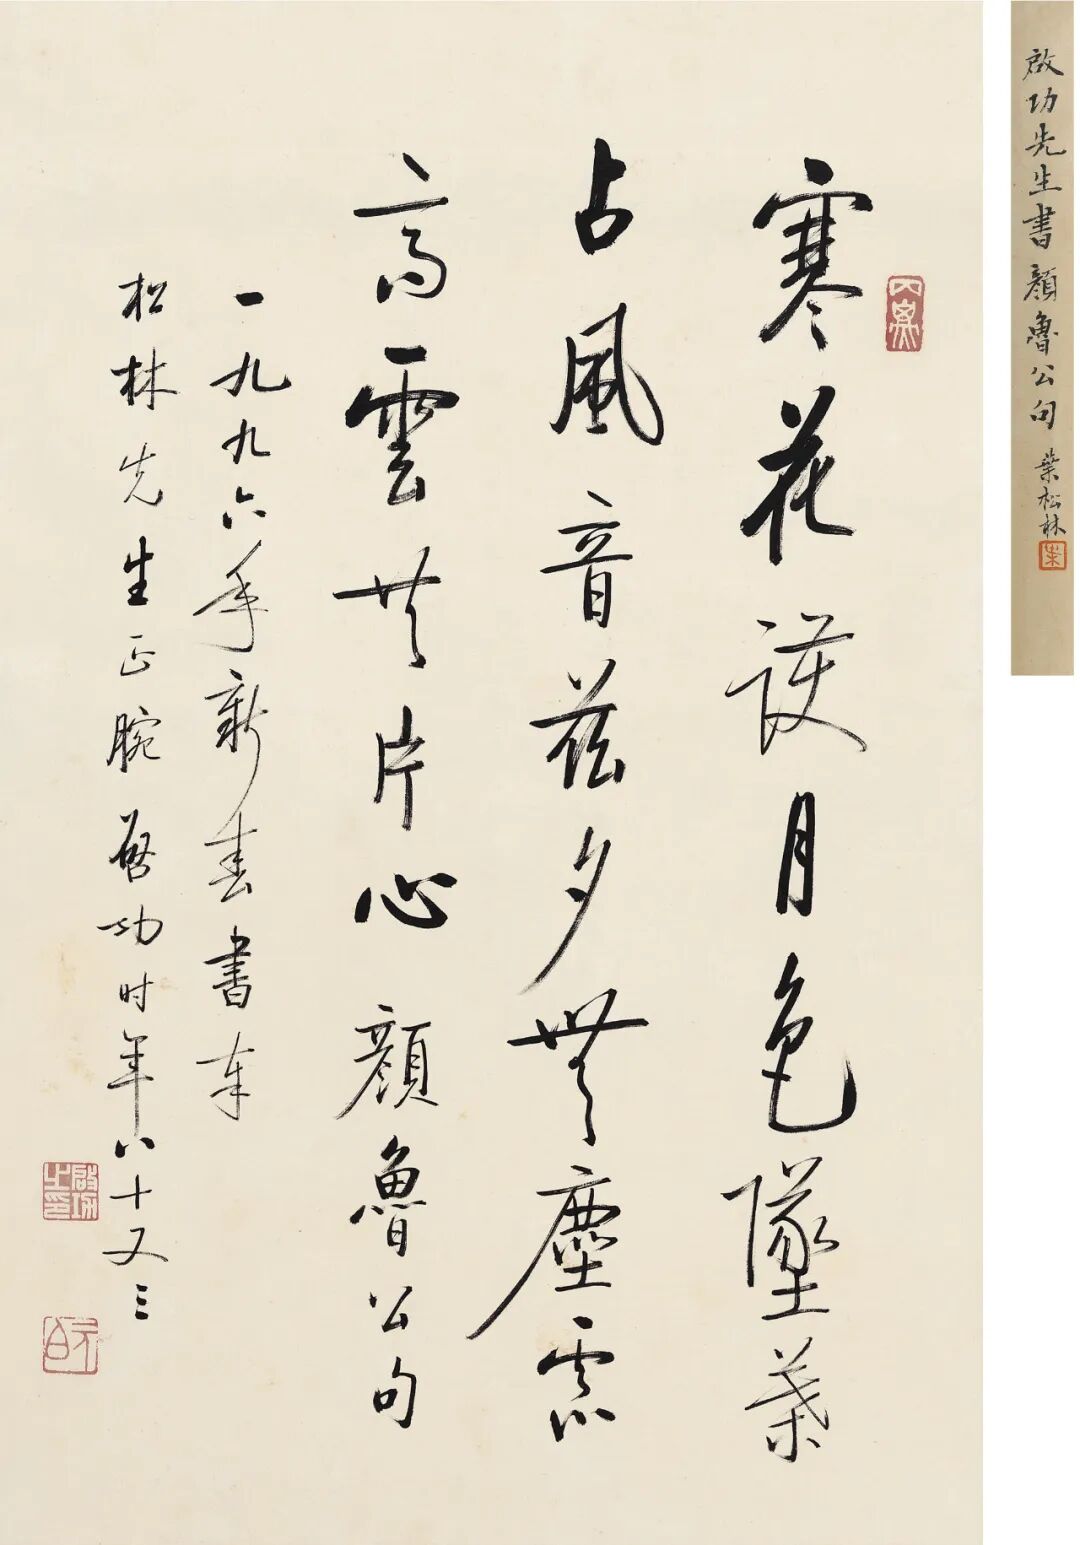 寒花護月色墜葉
占風音兹夕無塵慮
高雲共片心 顏魯公句
一九九六年新春書奉
松林先生正腕 啓功时年八十又三
啟功之印
元白
啟功先生書顏魯公句 葉松林
葉